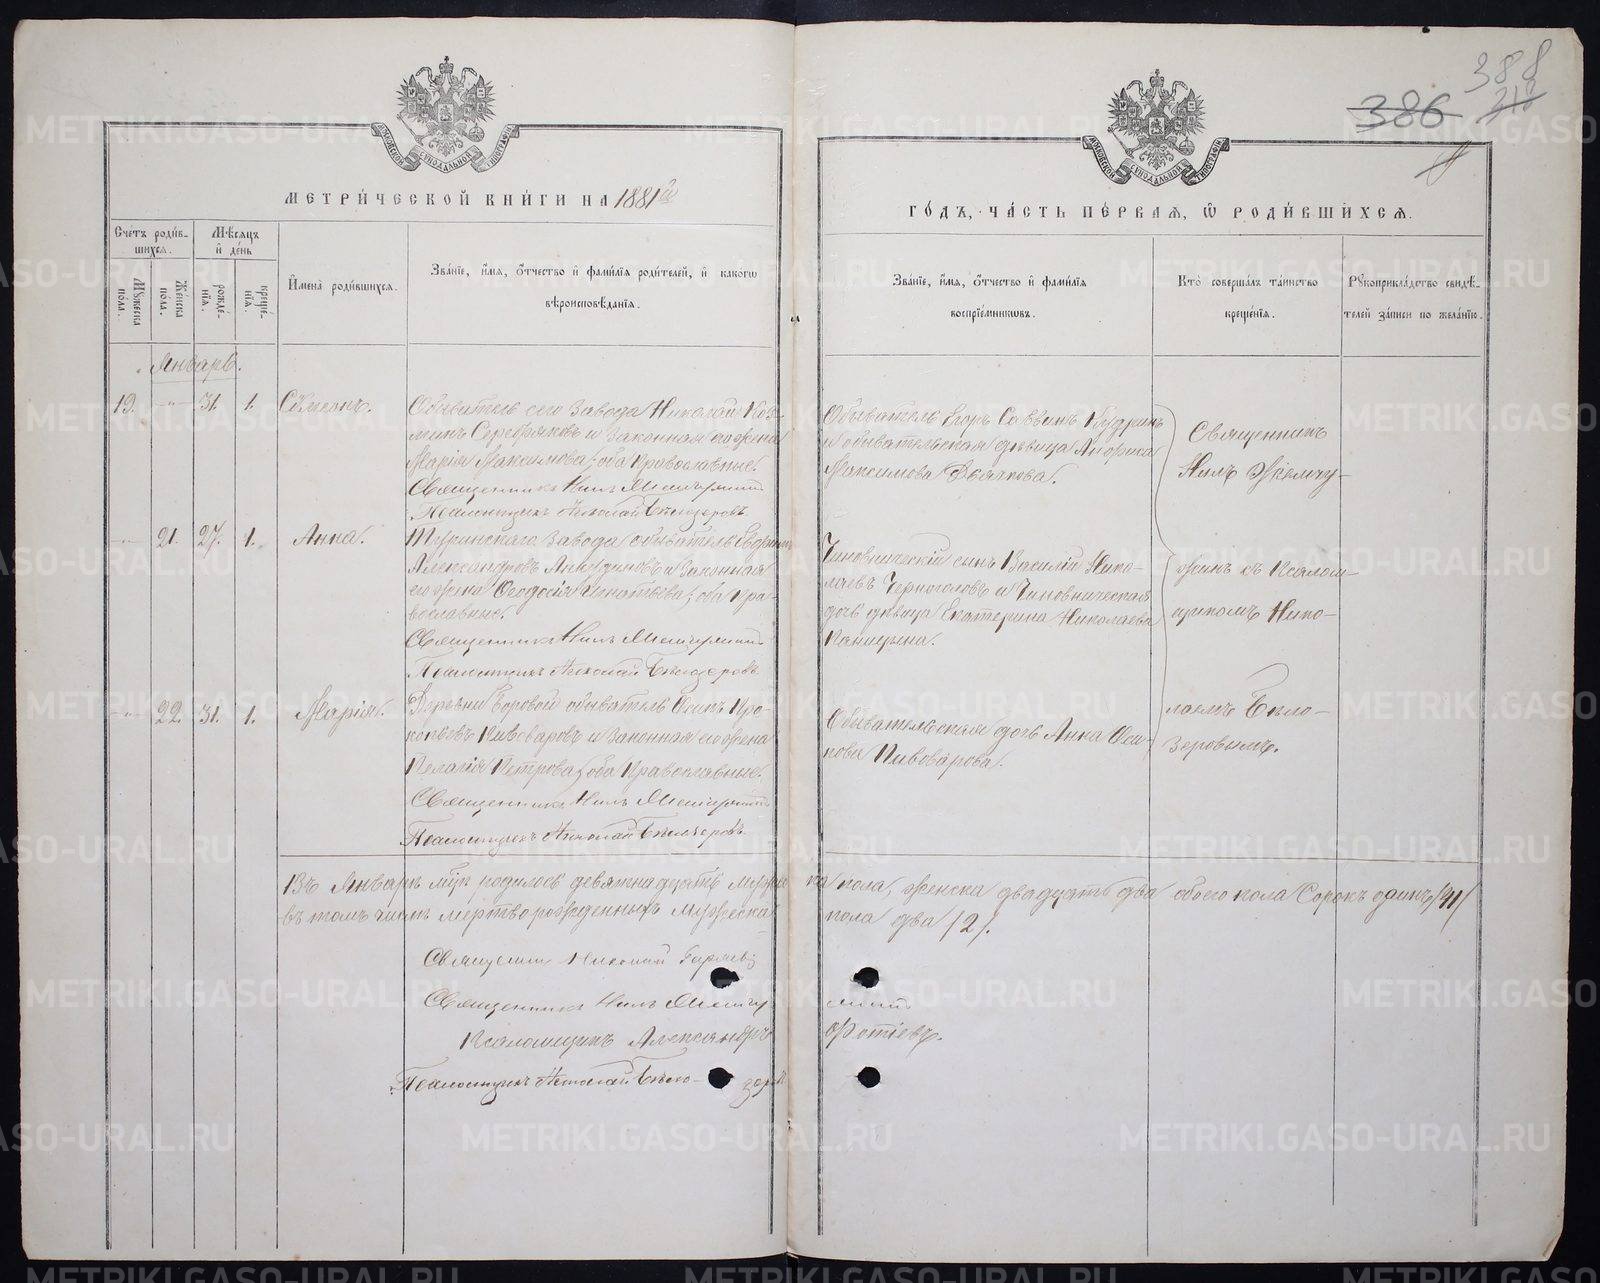 388
386
МЕТРИ́ЧЕСКОЙ КНИ́ГИ НА 1881й
ГО́ДЪ, ЧА́СТЬ ПЕ́РВАЯ, Ѿ РОДИ́ВШИХСЯ.
Сче́тъ роди́в-
шихся.
Мѣ́сяцъ
и҆ де́нь
Му́жеска
по́ла.
Же́нска
по́ла.
рожде́-
нїѧ.
креще́-
нїѧ.
И҆мена̀ роди́вшихся.
Зва́нїе, и҆́мя, ѻ҆́тчество и҆ фамѝлїя роди́телей, и҆ како́гѡ
вѣроисповѣ́данїя.
Зва́нїе, и҆́мя, ѻ҆́тчество и҆ фамѝлїя
воспрїе́мникѡвъ.
Кто̀ соверша́лъ та́инство
креще́нїя.
Рꙋкоприкла́дство свидѣ́-
телей за́писи по жела́нїю.
Январь.
19. -"- 31. 1. Сѵмеонъ.
Обыватель сего завода Николай Коз-
минъ Серебряковъ и законная его жена
Марія Максимова, оба православные.
Священникъ Нилъ
Псаломщикъ Николай Бѣлозеровъ
Обыватель Егоръ Саввинъ Кудринъ
и обывательская дѣвица
Максимова
Священникъ
Нилъ Жемчу-
-"- 21. 27. 1. Анна.
Туринскаго завода обыватель
Александровъ и законная
его жена Ѳеодосія Игнатьева, оба пра-
вославные.
Священникъ Нилъ
Псаломщикъ Николай Бѣлозеровъ
Чиновническій сынъ Василій Нико-
лаевъ Черноголовъ и Чиновническая
дочь дѣвица Екатерина Николаева
жинъ съ Псалом-
щикомъ Нико-
-"- 22. 31. 1. Марія.
Деревни Боровой обыватель Осипъ Про-
копьевъ Пивоваровъ и законная его жена
Пелагія Петрова, оба православные.
Священникъ Нилъ
Псаломщикъ Николай Бѣлозеровъ
Обывательская дочь Анна Оси-
пова Пивоварова.
лаемъ Бѣло-
зеровымъ.
Въ Январѣ мцѣ родилось девятнадцать мужеска пола, женска двадцать два обоего пола сорокъ одинъ /41/
въ томъ числѣ мертворожденныхъ мужеска пола два /2/.
Священникъ Николай
Священникъ Нилъ
Псаломщикъ Александръ Фотіевъ.
Псаломщикъ Николай Бѣлозеровъ
METRIKI.GASO-URAL.RU